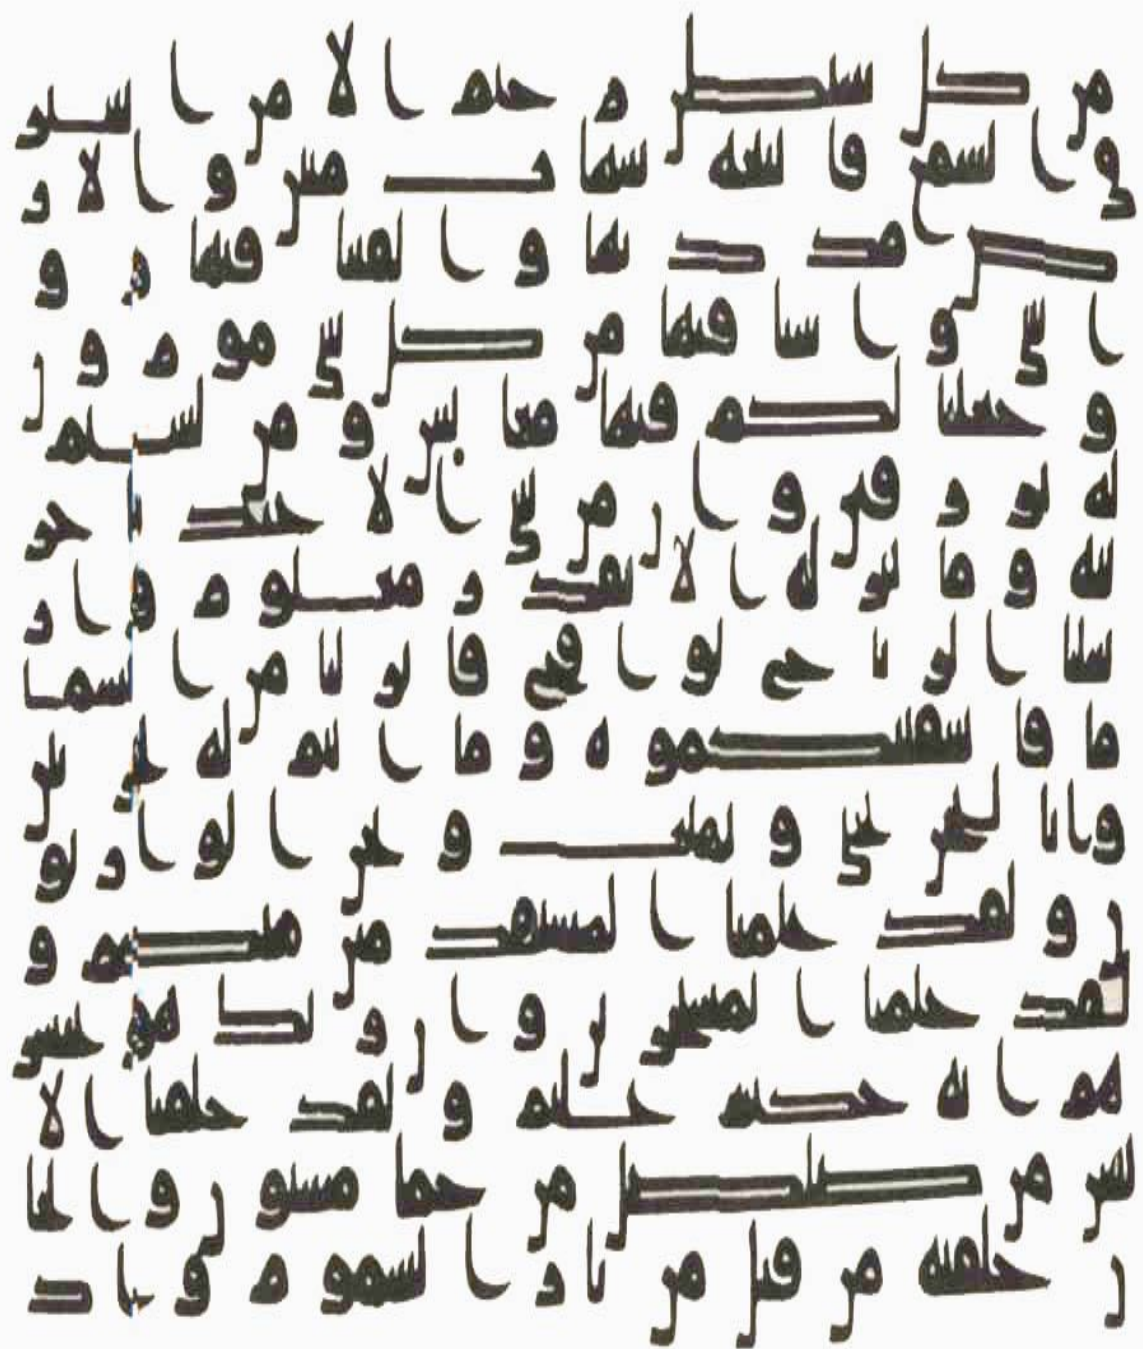 من كل شيطن رجيم الا من استر
ق السمع فاتبعه شهاب مبين والار
ض مددنها والقينا فيها رو
اسي وانبتنا فيها من كل شي موزون
وجعلنا لكم فيها معايش ومن لستم
له برزقين وان من شي الا عندنا خز
ئنه وما ننزله الا بقدر معلوم وار
سلنا الريح لواقح فانزلنا من السما
ما فاسقينكموه وما انتم له بخزنين
وانا لنحن نحي ونميت ونحن الورثو
ن ولقد علمنا المستقدمين منكم و
لقد علمنا المستخرين وان ربك هو يحشر
هم انه حكيم عليم ولقد خلقنا الا
نسن من صلصل من حما مسنون والجا
ن خلقنه من قبل من نار السموم واذ